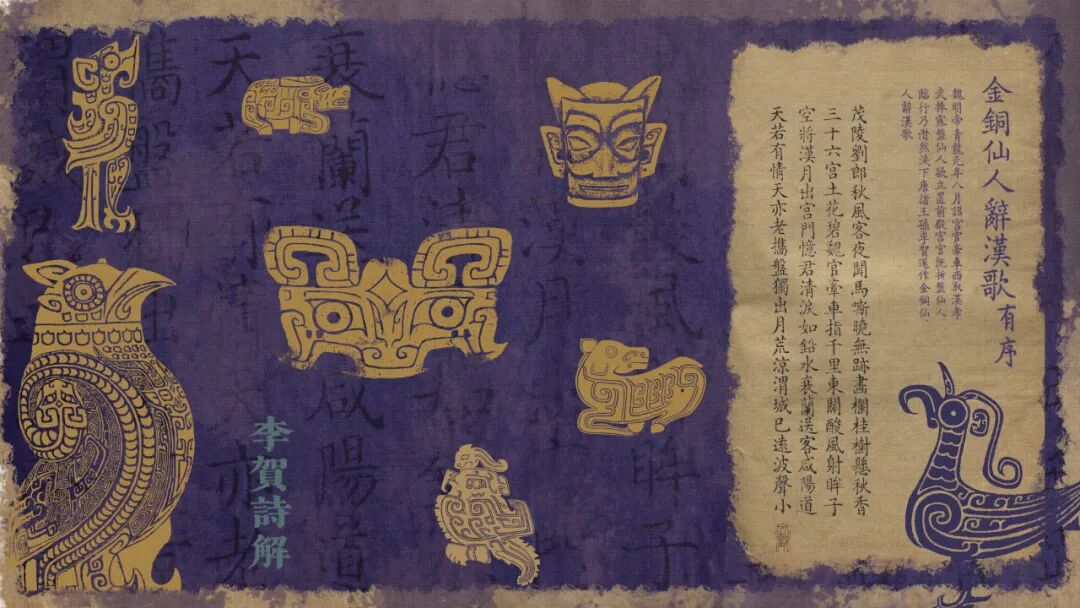 金銅仙人辭漢歌有序
魏明帝青龍元年八月詔宮官牽車西取漢孝
武捧露盤仙人欲立置前殿宮官既拆盤仙人
臨行乃潸然淚下唐諸王孫李賀遂作金銅仙
人辭漢歌
茂陵劉郎秋風客夜聞馬嘶曉無跡畫欄桂樹懸秋香
三十六宮土花碧魏官牽車指千里東關酸風射眸子
空將漢月出宮門憶君清淚如鉛水衰蘭送客咸陽道
天若有情天亦老攜盤獨出月荒涼渭城已遠波聲小
李賀詩解
風
眸子
漢月
君清
如
衰蘭送
咸陽道
天若
情
亦老
攜盤
出